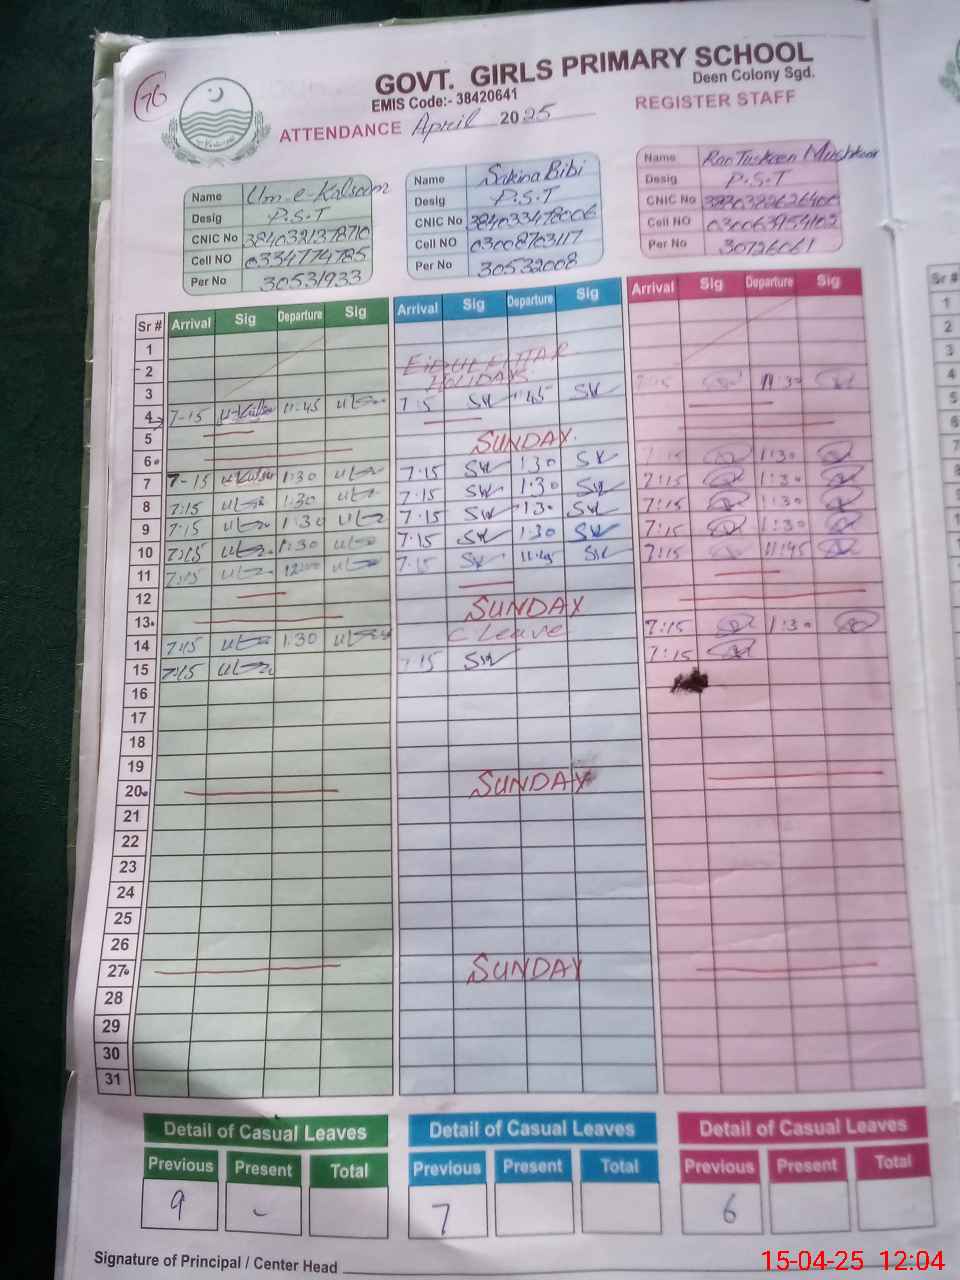 76
GOVT. GIRLS PRIMARY SCHOOL
Deen Colony Sgd.
EMIS Code:- 38420641
ATTENDANCE April 2025 REGISTER STAFF
Name Um-e-Kalsoom
Desig P.S.T
CNIC No 3840321378710
Cell NO 03347774785
Per No 30531933
Name Sakina Bibi
Desig P.S.T
CNIC No 3840334478006
Cell NO 03008703117
Per No 30532008
Name
Desig P.S.T
CNIC No
Cell NO 030063954102
Per No 30726061
Sr # Arrival Sig Departure Sig Arrival Sig Departure Sig Arrival Sig Departure Sig
1
2 EID UL FITTAR
3 HOLIDAYS
4 7-15 11:45 7:15 11:45 7:15 11:30
5
6 SUNDAY
7 7-15 1:30 7:15 1:30 7:15 1:30
8 7:15 1:30 7:15 1:30 7:15 1:30
9 7:15 1:30 7:15 1:30 7:15 1:30
10 7:15 1:30 7:15 1:30 7:15 1:30
11 7:15 12:00 7:15 11:45 7:15 11:45
12
13 SUNDAY
14 7:15 1:30 C Leave 7:15 1:30
15 7:15 7:15 7:15
16
17
18
19
20 SUNDAY
21
22
23
24
25
26
27 SUNDAY
28
29
30
31
Detail of Casual Leaves Detail of Casual Leaves Detail of Casual Leaves
Previous Present Total Previous Present Total Previous Present Total
9 - 7 6
Signature of Principal / Center Head
15-04-25 12:04
Sr #
1
2
3
4
5
6
7
8
9